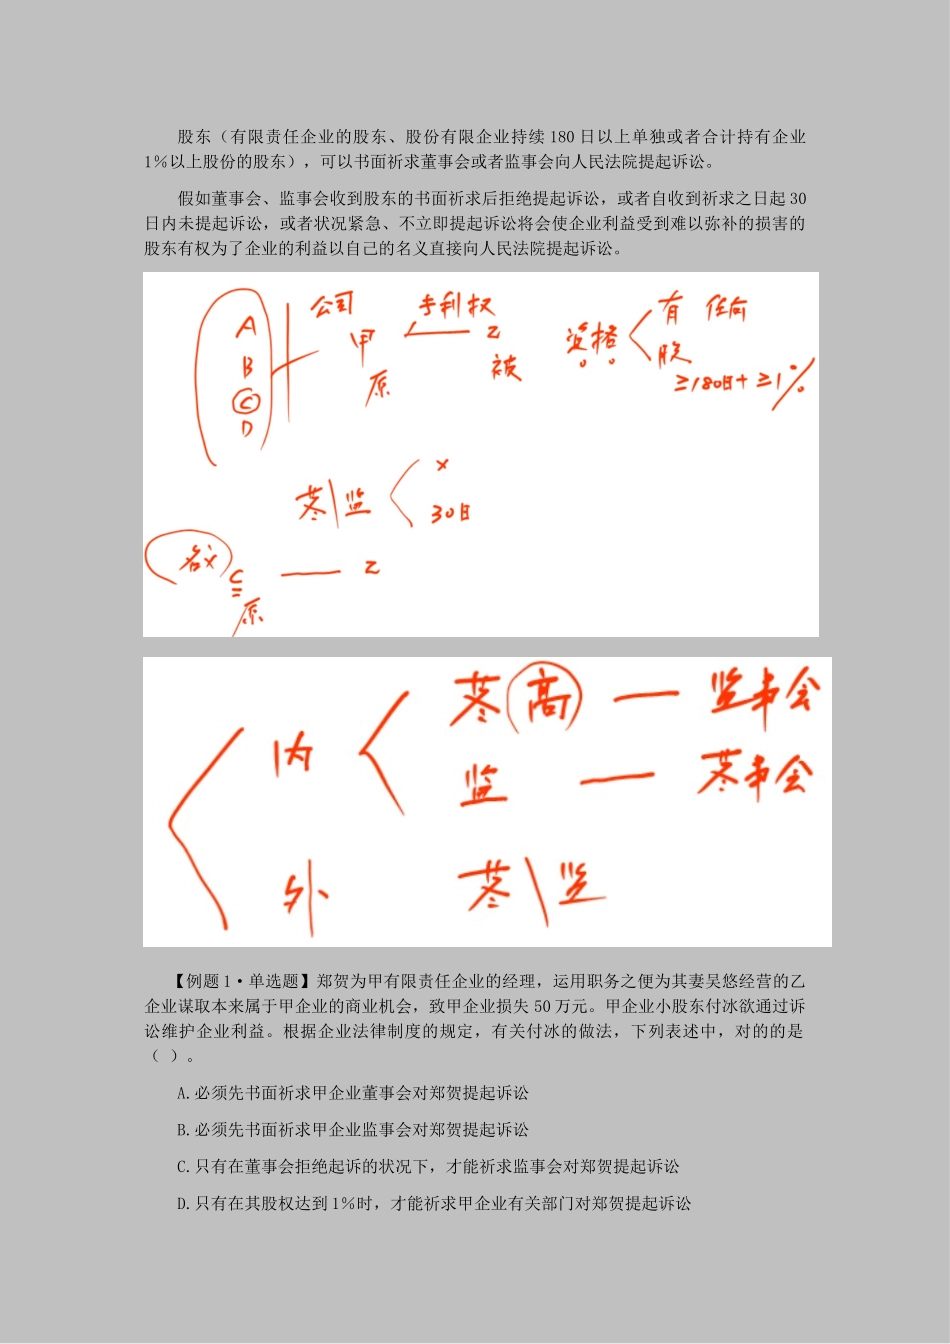 股东（有限责任企业的股东、股份有限企业持续 180 日以上单独或者合计持有企业
1%以上股份的股东），可以书面祈求董事会或者监事会向人民法院提起诉讼。
假如董事会、监事会收到股东的书面祈求后拒绝提起诉讼，或者自收到祈求之日起 30
日内未提起诉讼，或者状况紧急、不立即提起诉讼将会使企业利益受到难以弥补的损害的
股东有权为了企业的利益以自己的名义直接向人民法院提起诉讼。
公司 专利权 有 任何
A 甲 乙 资格
B 原 被 股
C ≥180日+ ≥1%
D
董\监 ×
30日
名义 C 乙
原
董高 — 监事会
内
监 — 董事会
外 董\监
【例题 1·单选题】郑贺为甲有限责任企业的经理，运用职务之便为其妻吴悠经营的乙
企业谋取本来属于甲企业的商业机会，致甲企业损失 50 万元。甲企业小股东付冰欲通过诉
讼维护企业利益。根据企业法律制度的规定，有关付冰的做法，下列表述中，对的的是
（ ）。
A.必须先书面祈求甲企业董事会对郑贺提起诉讼
B.必须先书面祈求甲企业监事会对郑贺提起诉讼
C.只有在董事会拒绝起诉的状况下，才能祈求监事会对郑贺提起诉讼
D.只有在其股权达到 1%时，才能祈求甲企业有关部门对郑贺提起诉讼